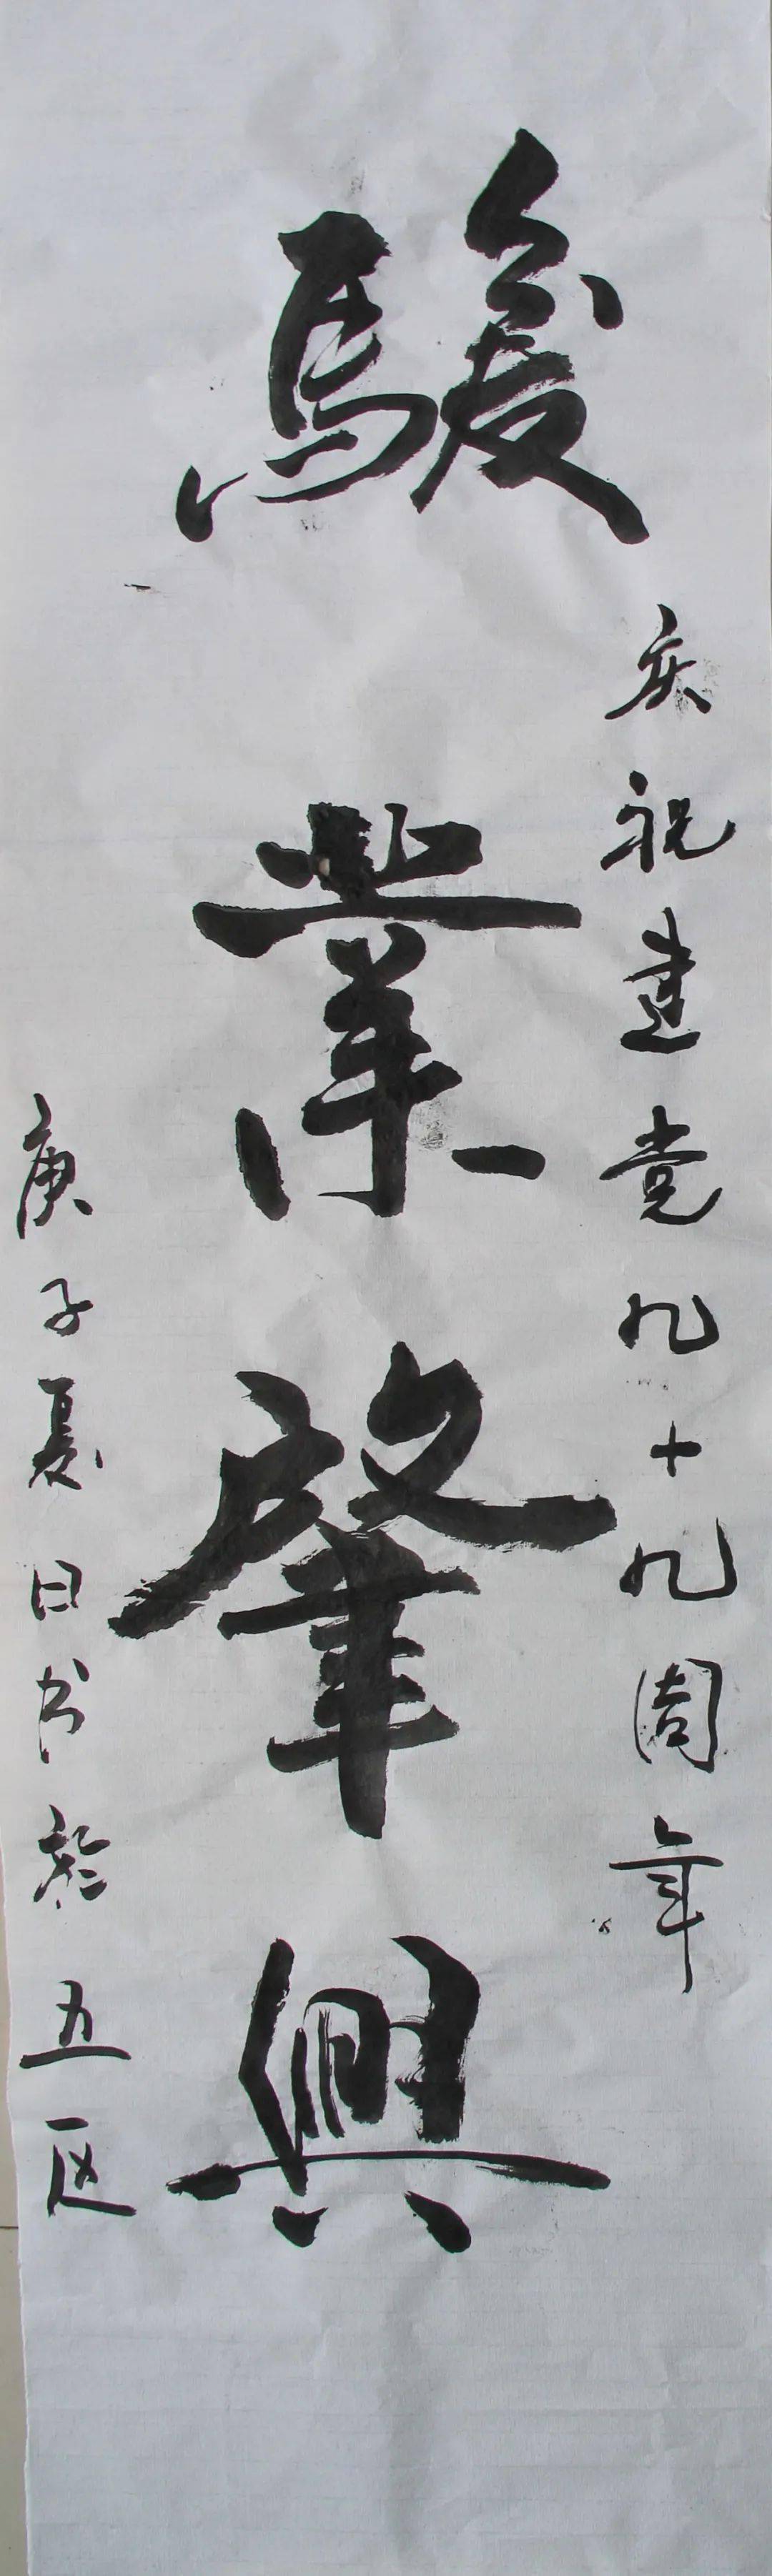 庆祝建党九十九周年
駿業肇興
庚子夏日书於五区